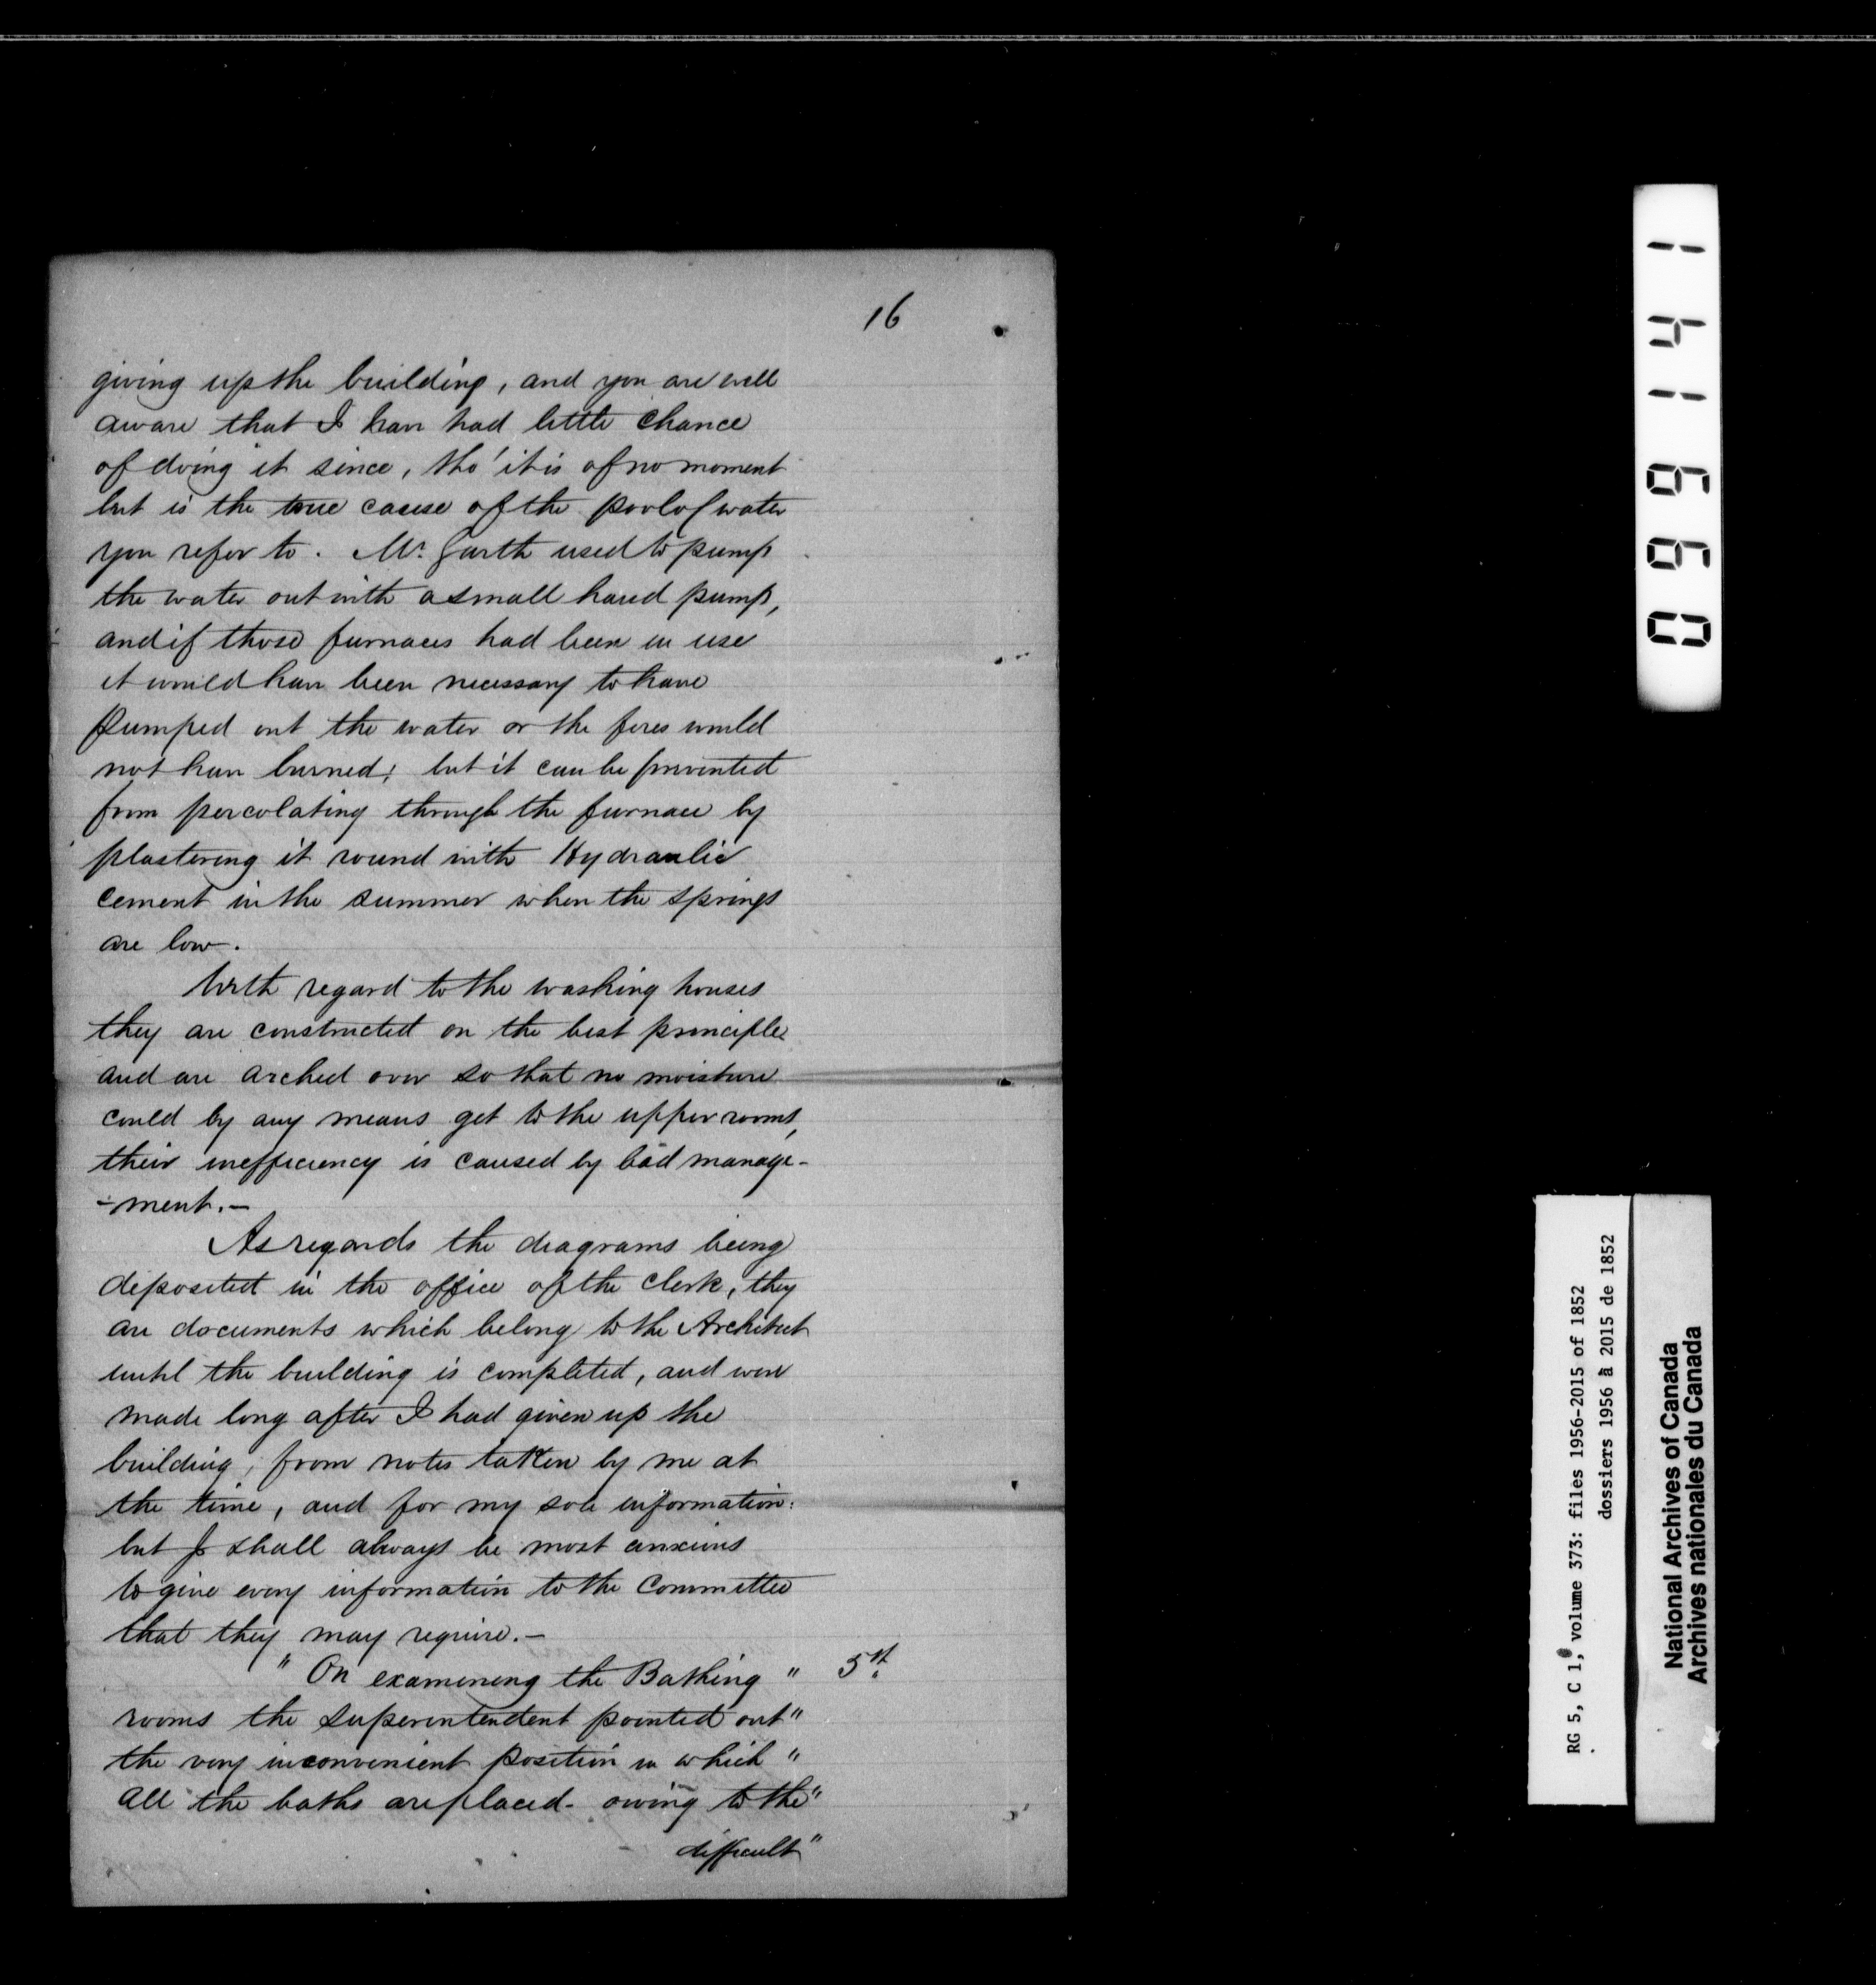 16
giving up the building, and you are well
aware that I have had little chance
of doing it since, tho' it is of no moment
but is the true cause of the pool of water
you refer to. Mr. Garth used to pump
the water out with a small hand pump,
and if those furnaces had been in use
it would have been necessary to have
pumped out the water or the fires would
not have burned; but it can be prevented
from percolating through the furnace by
plastering it round with Hydraulic
cement in the summer when the springs
are low.
With regard to the washing houses
they are constructed on the best principles
and are arched over so that no moisture
could by any means get to the upper rooms,
their inefficiency is caused by bad manage-
-ment.-
As regards the diagrams being
deposited in the office of the Clerk, they
are documents which belong to the Architect
until the building is completed, and were
made long after I had given up the
building, from notes taken by me at
the time, and for my sole information:
but I shall always be most anxious
to give every information to the Committee
that they may require.-
" On examining the Bathing " 5th.
rooms the superintendent pointed out "
the very inconvenient position in which "
all the baths are placed - owing to the "
difficult "
0991411
RG 5, C 1, volume 373: files 1956-2015 of 1852
dossiers 1956 à 2015 de 1852
National Archives of Canada
Archives nationales du Canada